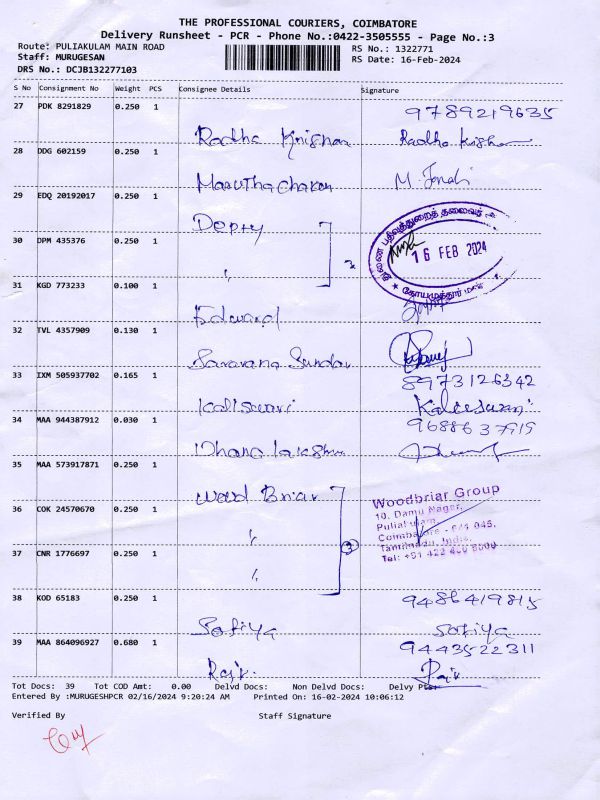 THE PROFESSIONAL COURIERS, COIMBATORE
Delivery Runsheet - PCR - Phone No.:0422-3505555 - Page No.:3
Route: PULIAKULAM MAIN ROAD RS No.: 1322771
Staff: MURUGESAN RS Date: 16-Feb-2024
DRS No.: DCJB132277103
S No Consignment No Weight PCS Consignee Details Signature
27 PDK 8291829 0.250 1 9789219635
Radha Krishnan Radha Krishna
28 DDG 602159 0.250 1
Maruthachalam M.
29 EDQ 20192017 0.250 1
Depty
30 DPM 435376 0.250 1
〃 2
துணை பதிவுத்துறைத் தலைவர்
16 FEB 2024
கோயமுத்தூர்
31 KGD 773233 0.100 1
Edward
32 TVL 4357909 0.130 1
Saravana Sundar
33 IXM 505937702 0.165 1 8973126342
Kaliswari Kaleeswari
34 MAA 944387912 0.030 1 9688637919
Dhana lakshmi
35 MAA 573917871 0.250 1
Wood Briar
36 COK 24570670 0.250 1
〃
37 CNR 1776697 0.250 1
〃 3
Woodbriar Group
10, Damu Nagar,
Puliakulam,
Coimbatore - 641 045,
Tamilnadu, India.
Tel: +91 422 400 8000
38 KOD 65183 0.250 1 9486419815
Sofiya Sofiya
39 MAA 864096927 0.680 1 9443522311
Rajv. Rajv
Tot Docs: 39 Tot COD Amt: 0.00 Delvd Docs: Non Delvd Docs: Delvy Pts:
Entered By :MURUGESHPCR 02/16/2024 9:20:24 AM Printed On: 16-02-2024 10:06:12
Verified By Staff Signature